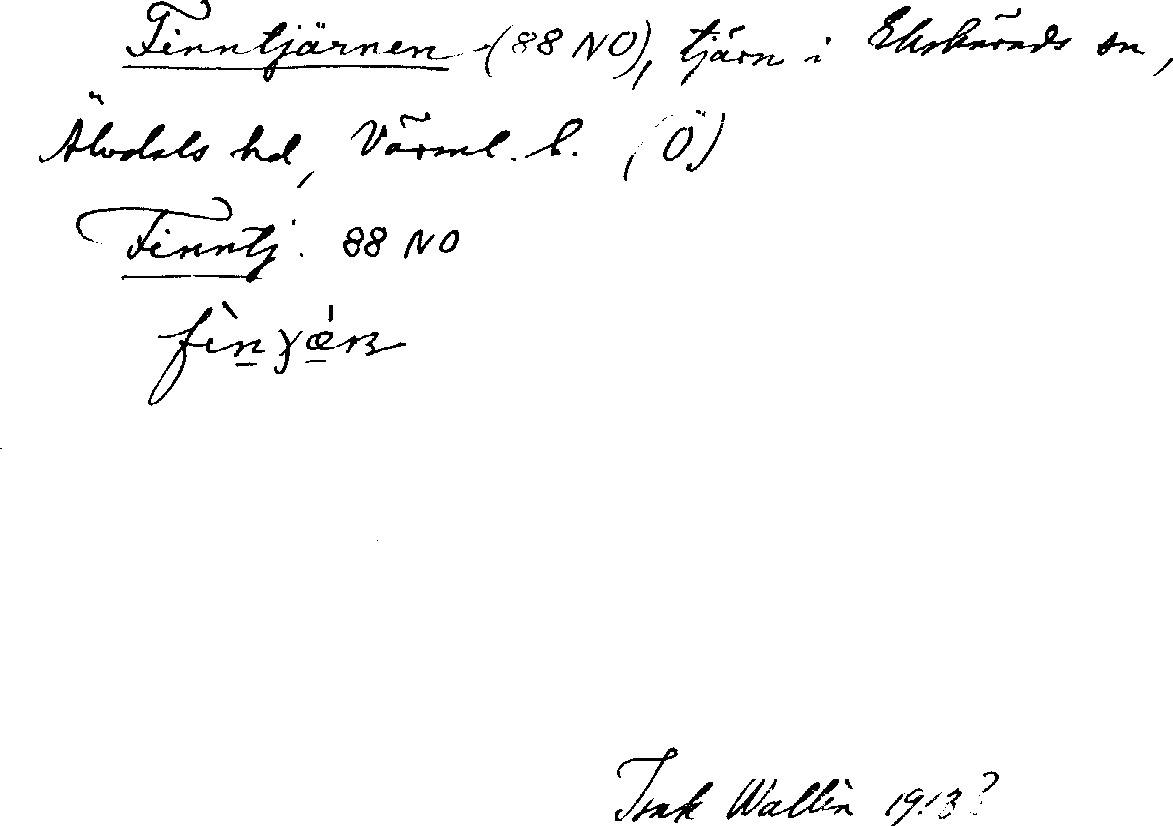 Finntjärnen (88 NO), tjärn i Ekshärads sn,
Älvdals hd, Värml. l. (Ö)
Finntj. 88 NO
Isak Wallin 1913?